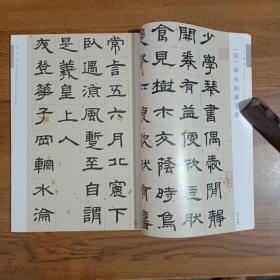 [清]鄧石如隸書屏
少學琴書偶愛閒靜
開卷有益便欣然忘
食見樹木交蔭時鳥
變聲亦復歡然有喜
常言五六月北窗下
臥遇涼風暫至自謂
是羲皇上人
夜登華子岡輞水淪